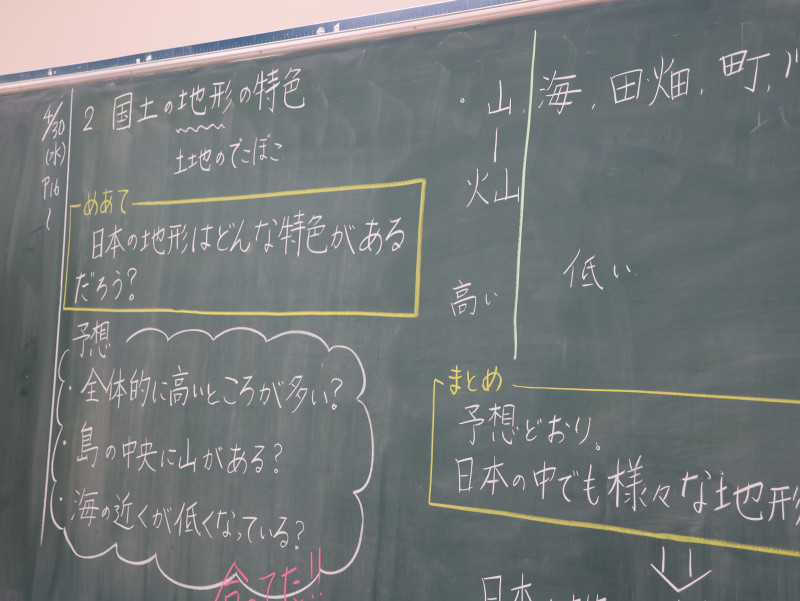 4/30
(水)
P16
〜
2 国土の地形の特色
土地のでこぼこ
めあて
日本の地形はどんな特色がある
だろう?
予想
・全体的に高いところが多い?
・島の中央に山がある?
・海の近くが低くなっている?
合ってた!!
・山,海,田畑,町,
火山
高い
低い
まとめ
予想どおり。
日本の中でも様々な地形
日本